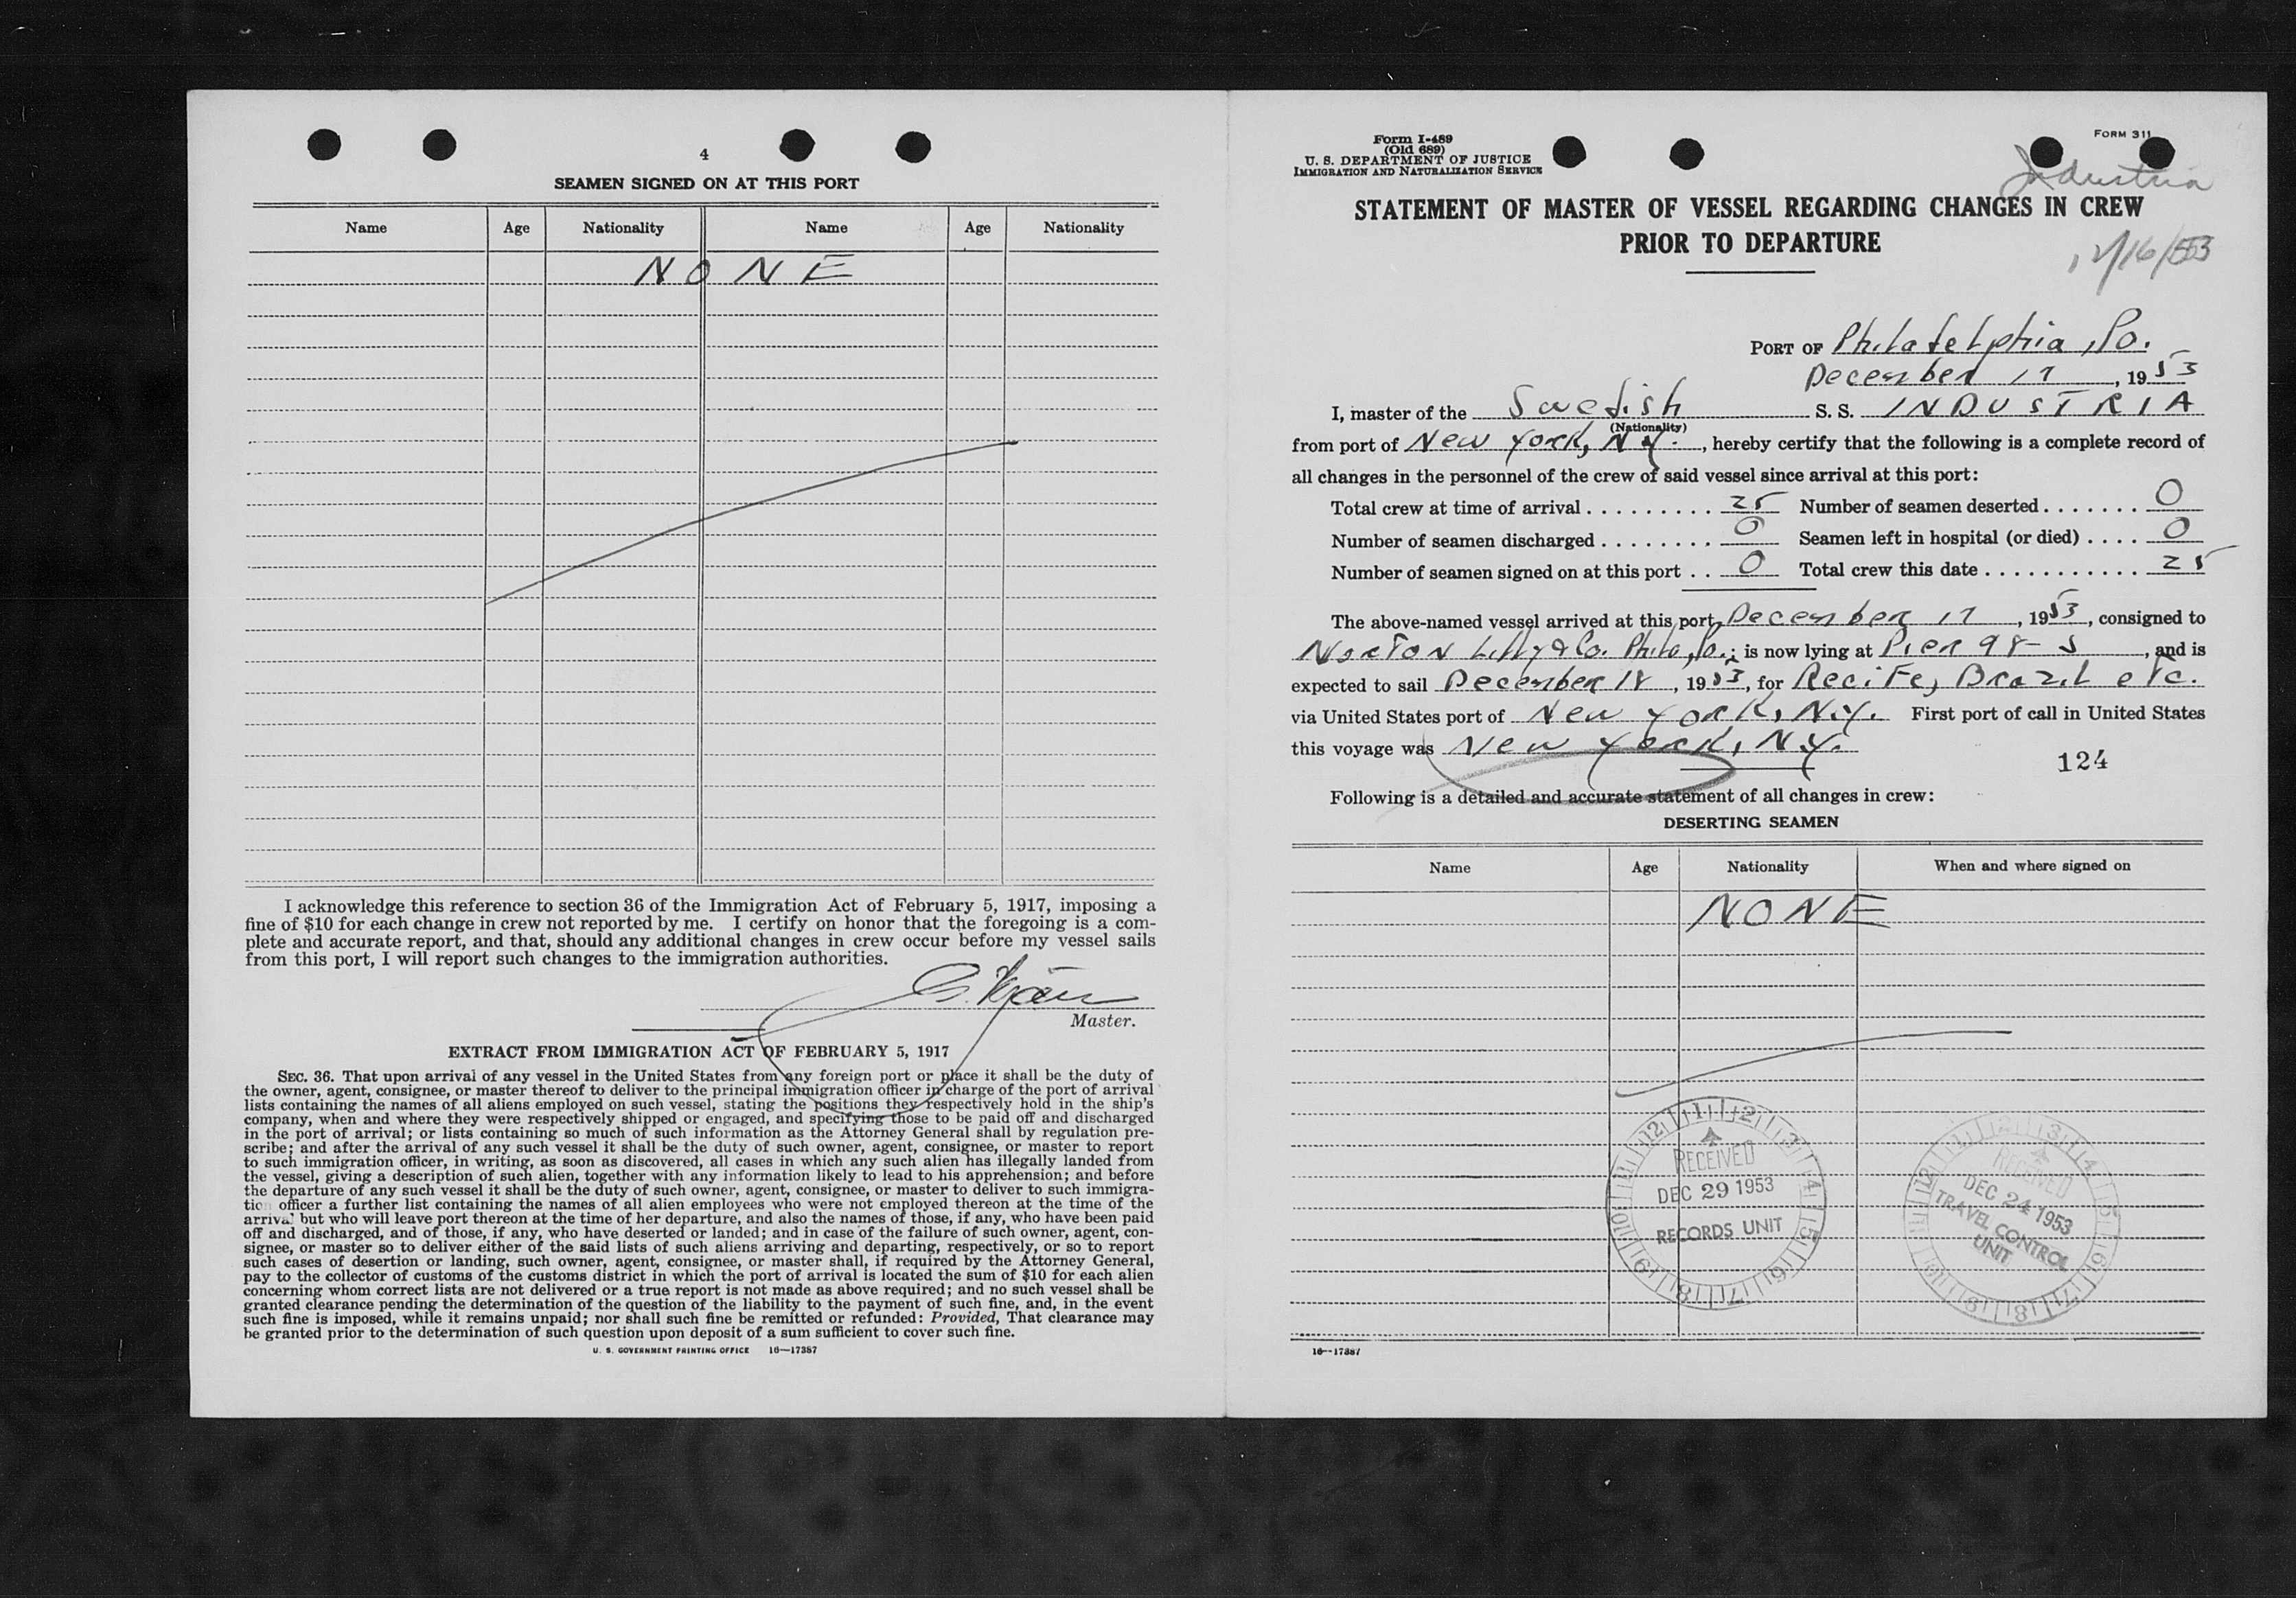 4
SEAMEN SIGNED ON AT THIS PORT
Name Age Nationality Name Age Nationality
NONE
I acknowledge this reference to section 36 of the Immigration Act of February 5, 1917, imposing a
fine of $10 for each change in crew not reported by me. I certify on honor that the foregoing is a com-
plete and accurate report, and that, should any additional changes in crew occur before my vessel sails
from this port, I will report such changes to the immigration authorities.
Master.
EXTRACT FROM IMMIGRATION ACT OF FEBRUARY 5, 1917
SEC. 36. That upon arrival of any vessel in the United States from any foreign port or place it shall be the duty of
the owner, agent, consignee, or master thereof to deliver to the principal immigration officer in charge of the port of arrival
lists containing the names of all aliens employed on such vessel, stating the positions they respectively hold in the ship's
company, when and where they were respectively shipped or engaged, and specifying those to be paid off and discharged
in the port of arrival; or lists containing so much of such information as the Attorney General shall by regulation pre-
scribe; and after the arrival of any such vessel it shall be the duty of such owner, agent, consignee, or master to report
to such immigration officer, in writing, as soon as discovered, all cases in which any such alien has illegally landed from
the vessel, giving a description of such alien, together with any information likely to lead to his apprehension; and before
the departure of any such vessel it shall be the duty of such owner, agent, consignee, or master to deliver to such immigra-
tion officer a further list containing the names of all alien employees who were not employed thereon at the time of the
arrival but who will leave port thereon at the time of her departure, and also the names of those, if any, who have been paid
off and discharged, and of those, if any, who have deserted or landed; and in case of the failure of such owner, agent, con-
signee, or master so to deliver either of the said lists of such aliens arriving and departing, respectively, or so to report
such cases of desertion or landing, such owner, agent, consignee, or master shall, if required by the Attorney General,
pay to the collector of customs of the customs district in which the port of arrival is located the sum of $10 for each alien
concerning whom correct lists are not delivered or a true report is not made as above required; and no such vessel shall be
granted clearance pending the determination of the question of the liability to the payment of such fine, and, in the event
such fine is imposed, while it remains unpaid; nor shall such fine be remitted or refunded: Provided, That clearance may
be granted prior to the determination of such question upon deposit of a sum sufficient to cover such fine.
U. S. GOVERNMENT PRINTING OFFICE 16—17387
Form I-489
(Old 689)
U. S. DEPARTMENT OF JUSTICE
IMMIGRATION AND NATURALIZATION SERVICE
FORM 311
Industria
STATEMENT OF MASTER OF VESSEL REGARDING CHANGES IN CREW
PRIOR TO DEPARTURE
12/16/53
PORT OF Philadelphia, Pa.
December 17, 1953
I, master of the Swedish S. S. INDUSTRIA
(Nationality)
from port of New York, N.Y., hereby certify that the following is a complete record of
all changes in the personnel of the crew of said vessel since arrival at this port:
Total crew at time of arrival ......... 25 Number of seamen deserted ....... 0
Number of seamen discharged ........ 0 Seamen left in hospital (or died) .... 0
Number of seamen signed on at this port .. 0 Total crew this date ............ 25
The above-named vessel arrived at this port, December 17, 1953, consigned to
Norton Lilly & Co. Phila, Pa.; is now lying at Pier 98-S, and is
expected to sail December 18, 1953, for Recife, Brazil etc.
via United States port of New York, N.Y. First port of call in United States
this voyage was New York, N.Y.
124
Following is a detailed and accurate statement of all changes in crew:
DESERTING SEAMEN
Name Age Nationality When and where signed on
NONE
RECEIVED
DEC 29 1953
RECORDS UNIT
RECEIVED
DEC 24 1953
TRAVEL CONTROL
UNIT
16—17387